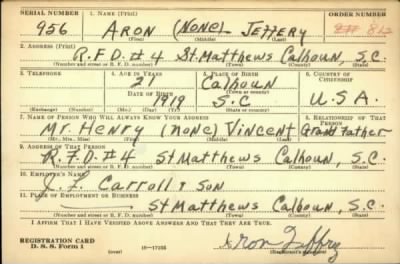 SERIAL NUMBER 1. NAME (Print) ORDER NUMBER
956 ARON (NONE) JEFFERY 812
(First) (Middle) (Last)
2. ADDRESS (Print)
R.F.D. #4 St. Matthews Calhoun, S.C.
(Number and street or R. F. D. number) (Town) (County) (State)
3. TELEPHONE 4. AGE IN YEARS 5. PLACE OF BIRTH 6. COUNTRY OF CITIZENSHIP
21 Calhoun
DATE OF BIRTH (Town or county)
1919 S.C U.S.A.
(Exchange) (Number) (Mo.) (Day) (Yr.) (State or country)
7. NAME OF PERSON WHO WILL ALWAYS KNOW YOUR ADDRESS 8. RELATIONSHIP OF THAT PERSON
Mr. Henry (none) Vincent Grand Father
(Mr., Mrs., Miss) (First) (Middle) (Last)
9. ADDRESS OF THAT PERSON
R.F.D. #4 St Matthews Calhoun, S.C.
(Number and street or R. F. D. number) (Town) (County) (State)
10. EMPLOYER'S NAME
J. L. Carroll & Son
11. PLACE OF EMPLOYMENT OR BUSINESS
St Matthews Calhoun, S.C.
(Number and street or R. F. D. number) (Town) (County) (State)
I AFFIRM THAT I HAVE VERIFIED ABOVE ANSWERS AND THAT THEY ARE TRUE.
REGISTRATION CARD
D. S. S. Form 1 (over) Aron Jeffry